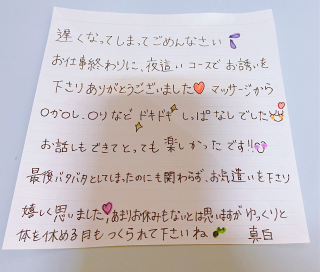 遅くなってしまってごめんなさい
お仕事終わりに、夜這いコースでお誘いを
下さりありがとうございました マッサージから
〇か〇し、〇りなど ドキドキしっぱなしでした
お話しもできてとっても楽しかったです!!
最後バタバタとしてしまったのにも関わらず、お気遣いを下さり
嬉しく思いました あまりお休みもないとは思いますがゆっくりと
体を休める月もつくられて下さいね 真白